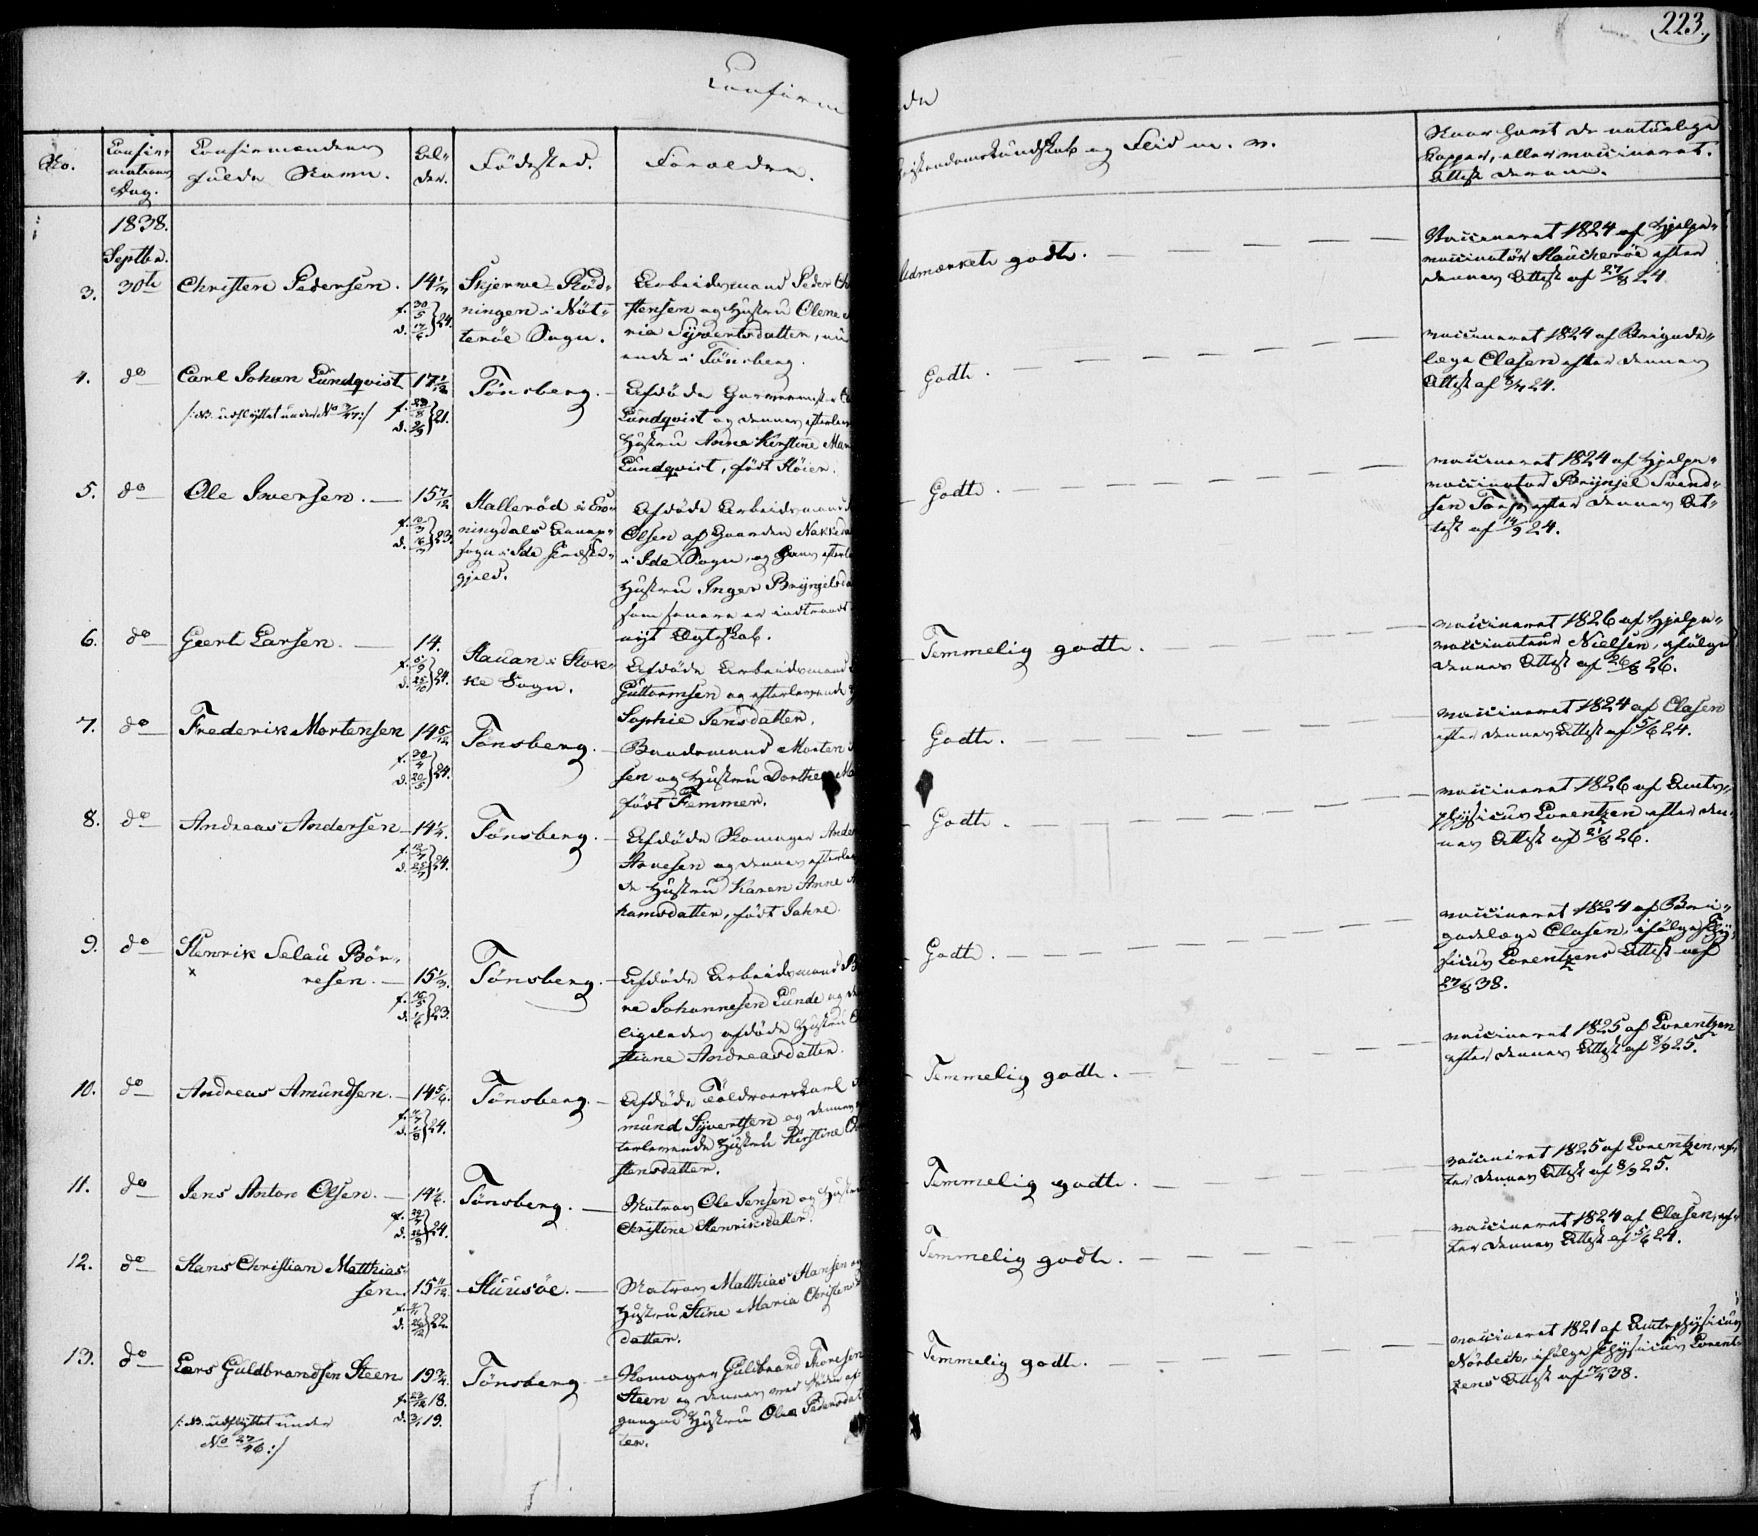 223.
Confirm
de
No.
Confir-
mations
Dag.
Confirmandens
fulde Navn.
Al-
der.
Födested.
Foreldre.
Kristendomskundskab og Flid m. v.
Naar havt de naturlige
Kopper, eller vaccineret.
Attest derom.
1838.
Septbr.
3.
30te
Christen Pedersen.
14 1/3
f. 30/5
d. 17/6 } 24.
Skjerve-Röd-
ningen i Nöt-
teröe Sogn.
Arbeidsmand Peder Ch
stensen og Hustru Olene
ria Syvertsdatter,
ende i Tönsberg.
Udmærket godt.
Vaccineret 1824 af Hjelpe-
vaccinatör Haucheröe efter
dennes Attest af 27/8 24.
4.
do
Carl Johan Lundqvist
17 1/12
/: NB. udflyttet under No :/
Tönsberg.
Afdöde Garvermester C
Lundqvist og dennes efterlev
Hustru Anne Kirstine Mar
Lundqvist, födt Höier.
Godt.
vaccineret 1824 af Brigade-
læge Clasen efter dennes
Attest af 24.
5.
do
Ole Iversen.
15 7/12
Halleröd i En-
ningdals Annex-
sogn i Ide Præste-
gjeld.
Afdöde Arbeidsmand
Olsen af Gaarden Nakke
i Ide Sogn, og hans efterle
Hustru Inger Bryngelsda
som senere er indtraadt
nyt Ægteskab.
Godt.
vaccineret 1824 af Hjelpe-
vaccinator Brynjel Svend-
sen Torp efter dennes At-
test af 14/9 24.
6.
do
Geert Larsen.
14.
Hauan i Stok-
ke Sogn.
Afdöde Arbeidsmand
Guttormsen og efterlevende
Sophie Jensdatter.
Temmelig godt.
vaccineret 1826 af Hjelpe-
vaccinateur Nielsen, ifölge
dennes Attest af 26/8 26.
7.
do
Frederik Mortensen
14 5/12
Tönsberg.
Baadsmand Morten
sen og Hustru Dorthea Ma
födt Femmer.
Godt.
vaccineret 1824 af Clasen
efter dennes Attest af 5/6 24.
8.
do
Andreas Andersen
14 1/4.
Tönsberg.
Afdöde Skomager Ander
Arnesen og dennes efterlev
de Hustru Karen Anne
hamsdatter, födt Jahre.
Godt.
vaccineret 1826 af Amts-
physicus Lorentzen efter den-
nes Attest af 21/8 26.
9.
do
Henrik Selau Bör-
resen.
15 1/3.
Tönsberg.
Afdöde Arbeidsmand B
re Johannesen Lunde og de
ligeledes afdöde Hustru
stiane Andreasdatter.
Godt.
vaccineret 1824 af Bri-
gadelæge Clasen, ifölge Phy-
sicus Lorentzens Attest af
27/8 38.
10.
do
Andreas Amundsen.
14 5/6.
Tönsberg.
Afdöde Toldroerskarl
mund Syvertsen og dennes
terlevende Hustru Kirstine Ch
stensdatter.
Temmelig godt.
vaccineret 1825 af Lorentzen
efter dennes Attest af 8/9 25.
11.
do
Jens Anton Olsen.
14 1/6.
Tönsberg.
Matros Ole Jensen og Hustru
Christine Henriksdatter.
Temmelig godt.
vaccineret 1825 af Lorentzen, ef-
ter dennes Attest af 8/9 25.
12.
do
Hans Christian Matthias-
sen.
15 11/12.
Huusöe.
Matros Matthias Hansen og
Hustru Stine Maria Christens
datter.
Temmelig godt.
vaccineret 1824 af Clasen, ef-
ter dennes Attest af 5/6 24.
13.
do
Lars Guldbrandsen Steen
19 3/4.
/: NB. udflyttet under
No 27/46 :/
Tönsberg
Skomager Guldbrand Thoresen
Steen og dennes ved Döden af-
gangne Hustru Olea Pedersdat
ter.
Temmelig godt.
vaccineret 1821 af Amtsphysicus
Nörbeck, ifölge Physicus Lorent-
zens Attest af 38.